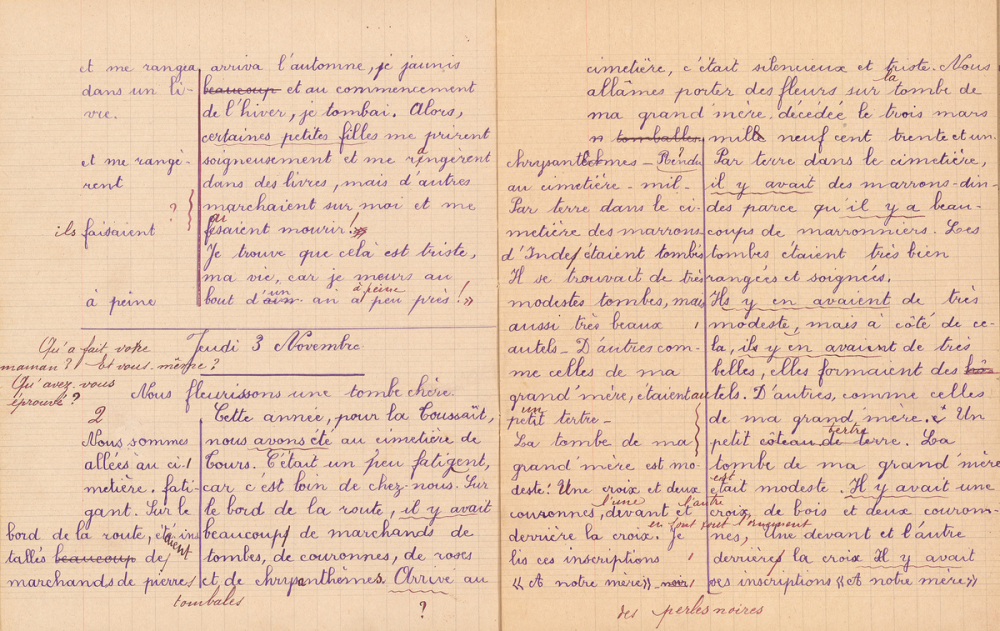 et me rangea arriva l'automne, je jaunis
dans un li- beaucoup et au commencement
vre. de l'hiver, je tombai. Alors,
certaines petites filles me prirent
et me rangè- soigneusement et me rangèrent
rent dans des livres, mais d'autres
? marchaient sur moi et me
ils faisaient faisaient mourir!
Je trouve que celà est triste,
ma vie, car je meurs au
à peine bout d'un an à peu près!»
à peine
Jeudi 3 Novembre
Qu'a fait votre
maman? Et vous-même?
Qu'avez-vous
éprouvé?
Nous fleurissons une tombe chère.
2 Cette année, pour la Toussaît,
Nous sommes nous avons été au cimetière de
allées au ci- Tours. C'était un peu fatigent,
metière. fati- car c'est loin de chez-nous. Sur
gant. Sur le le bord de la route, il y avait
bord de la route, étaient ins beaucoup de marchands de
tallés beaucoup de tombes, de couronnes, de roses
marchands de pierres et de chrysanthèmes. Arrivé au
tombales ?
cimetière, c'était silencieux et triste. Nous
allâmes porter des fleurs sur la tombe de
ma grand'mère. décédée le trois mars
n tomballes mille neuf cent trente et un.
chrysanthèmes - Rendu? Par terre dans le cimetière,
au cimetière - mil- il y avait des marrons-din-
Par terre dans le ci- des parce qu'il y a beau-
metière des marrons coups de marronniers. Les
d'Inde étaient tombés tombes étaient très bien
Il se trouvait de très rangées et soignées.
modestes tombes, mais Ils y en avaient de très
aussi très beaux modeste, mais à côté de ce-
autels - D'autres com- la, ils y en avaient de très
me celles de ma belles, elles formaient des
grand'mère, étaient autels. D'autres, comme celles
un petit tertre - de ma grand'mère. Un
La tombe de ma petit côteau de terre. La
tertre
grand'mère est mo- tombe de ma grand'mère
deste! Une croix et deux était modeste. Il y avait une
est
couronnes, devant et croix, de bois et deux couron-
l'une l'autre
derrière la croix. Je nes, Une devant et l'autre
en font tout l'ornement
lis ces inscriptions derrière la croix Il y avait
«A notre mère» noir ses inscriptions «A notre mère»
des perles noires